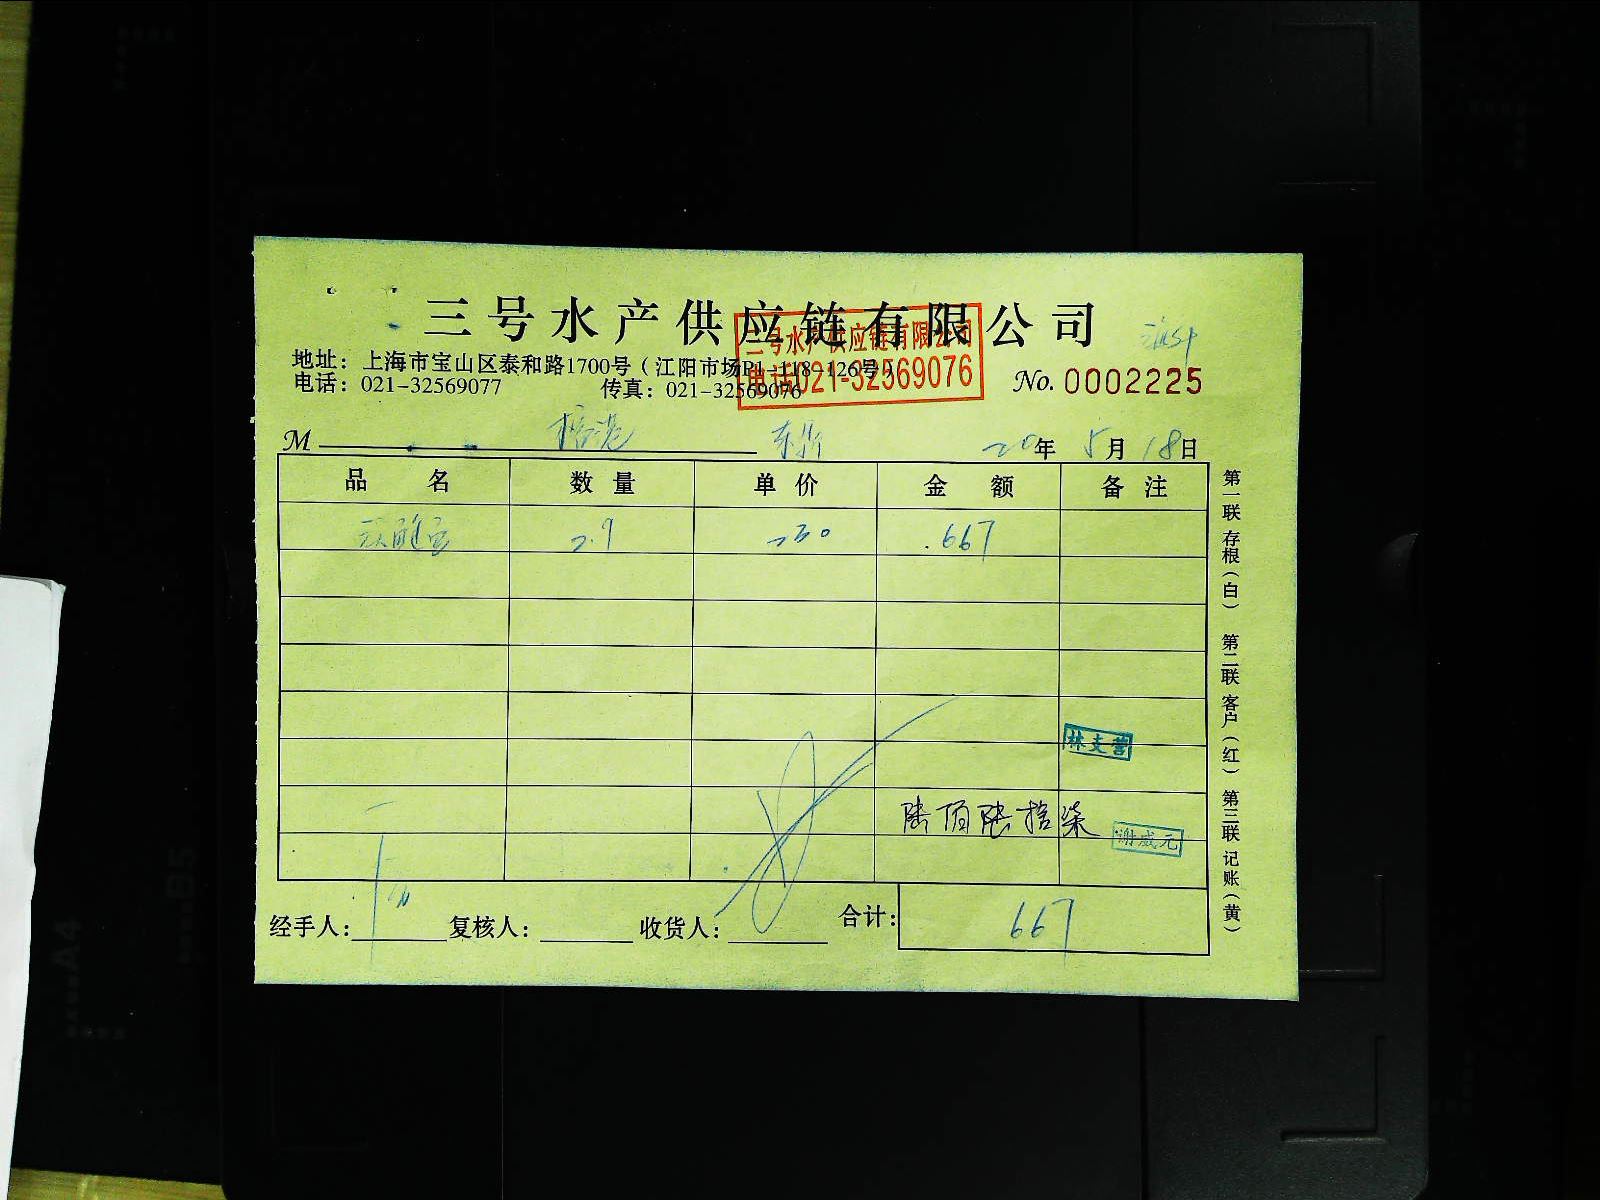 三号水产供应链有限公司
三号水产供应链有限公司
电话021-32569076
地址：上海市宝山区泰和路1700号（江阳市场P1-118-126号）
电话：021-32569077 传真：021-32569076
No. 0002225
M
20年 5月 18日
品名 数量 单价 金额 备注
2.9 230 667
林支营
陆佰陆拾柒
谢威元
经手人： 复核人： 收货人： 合计： 667
第一联 存根（白） 第二联 客户（红） 第三联 记账（黄）